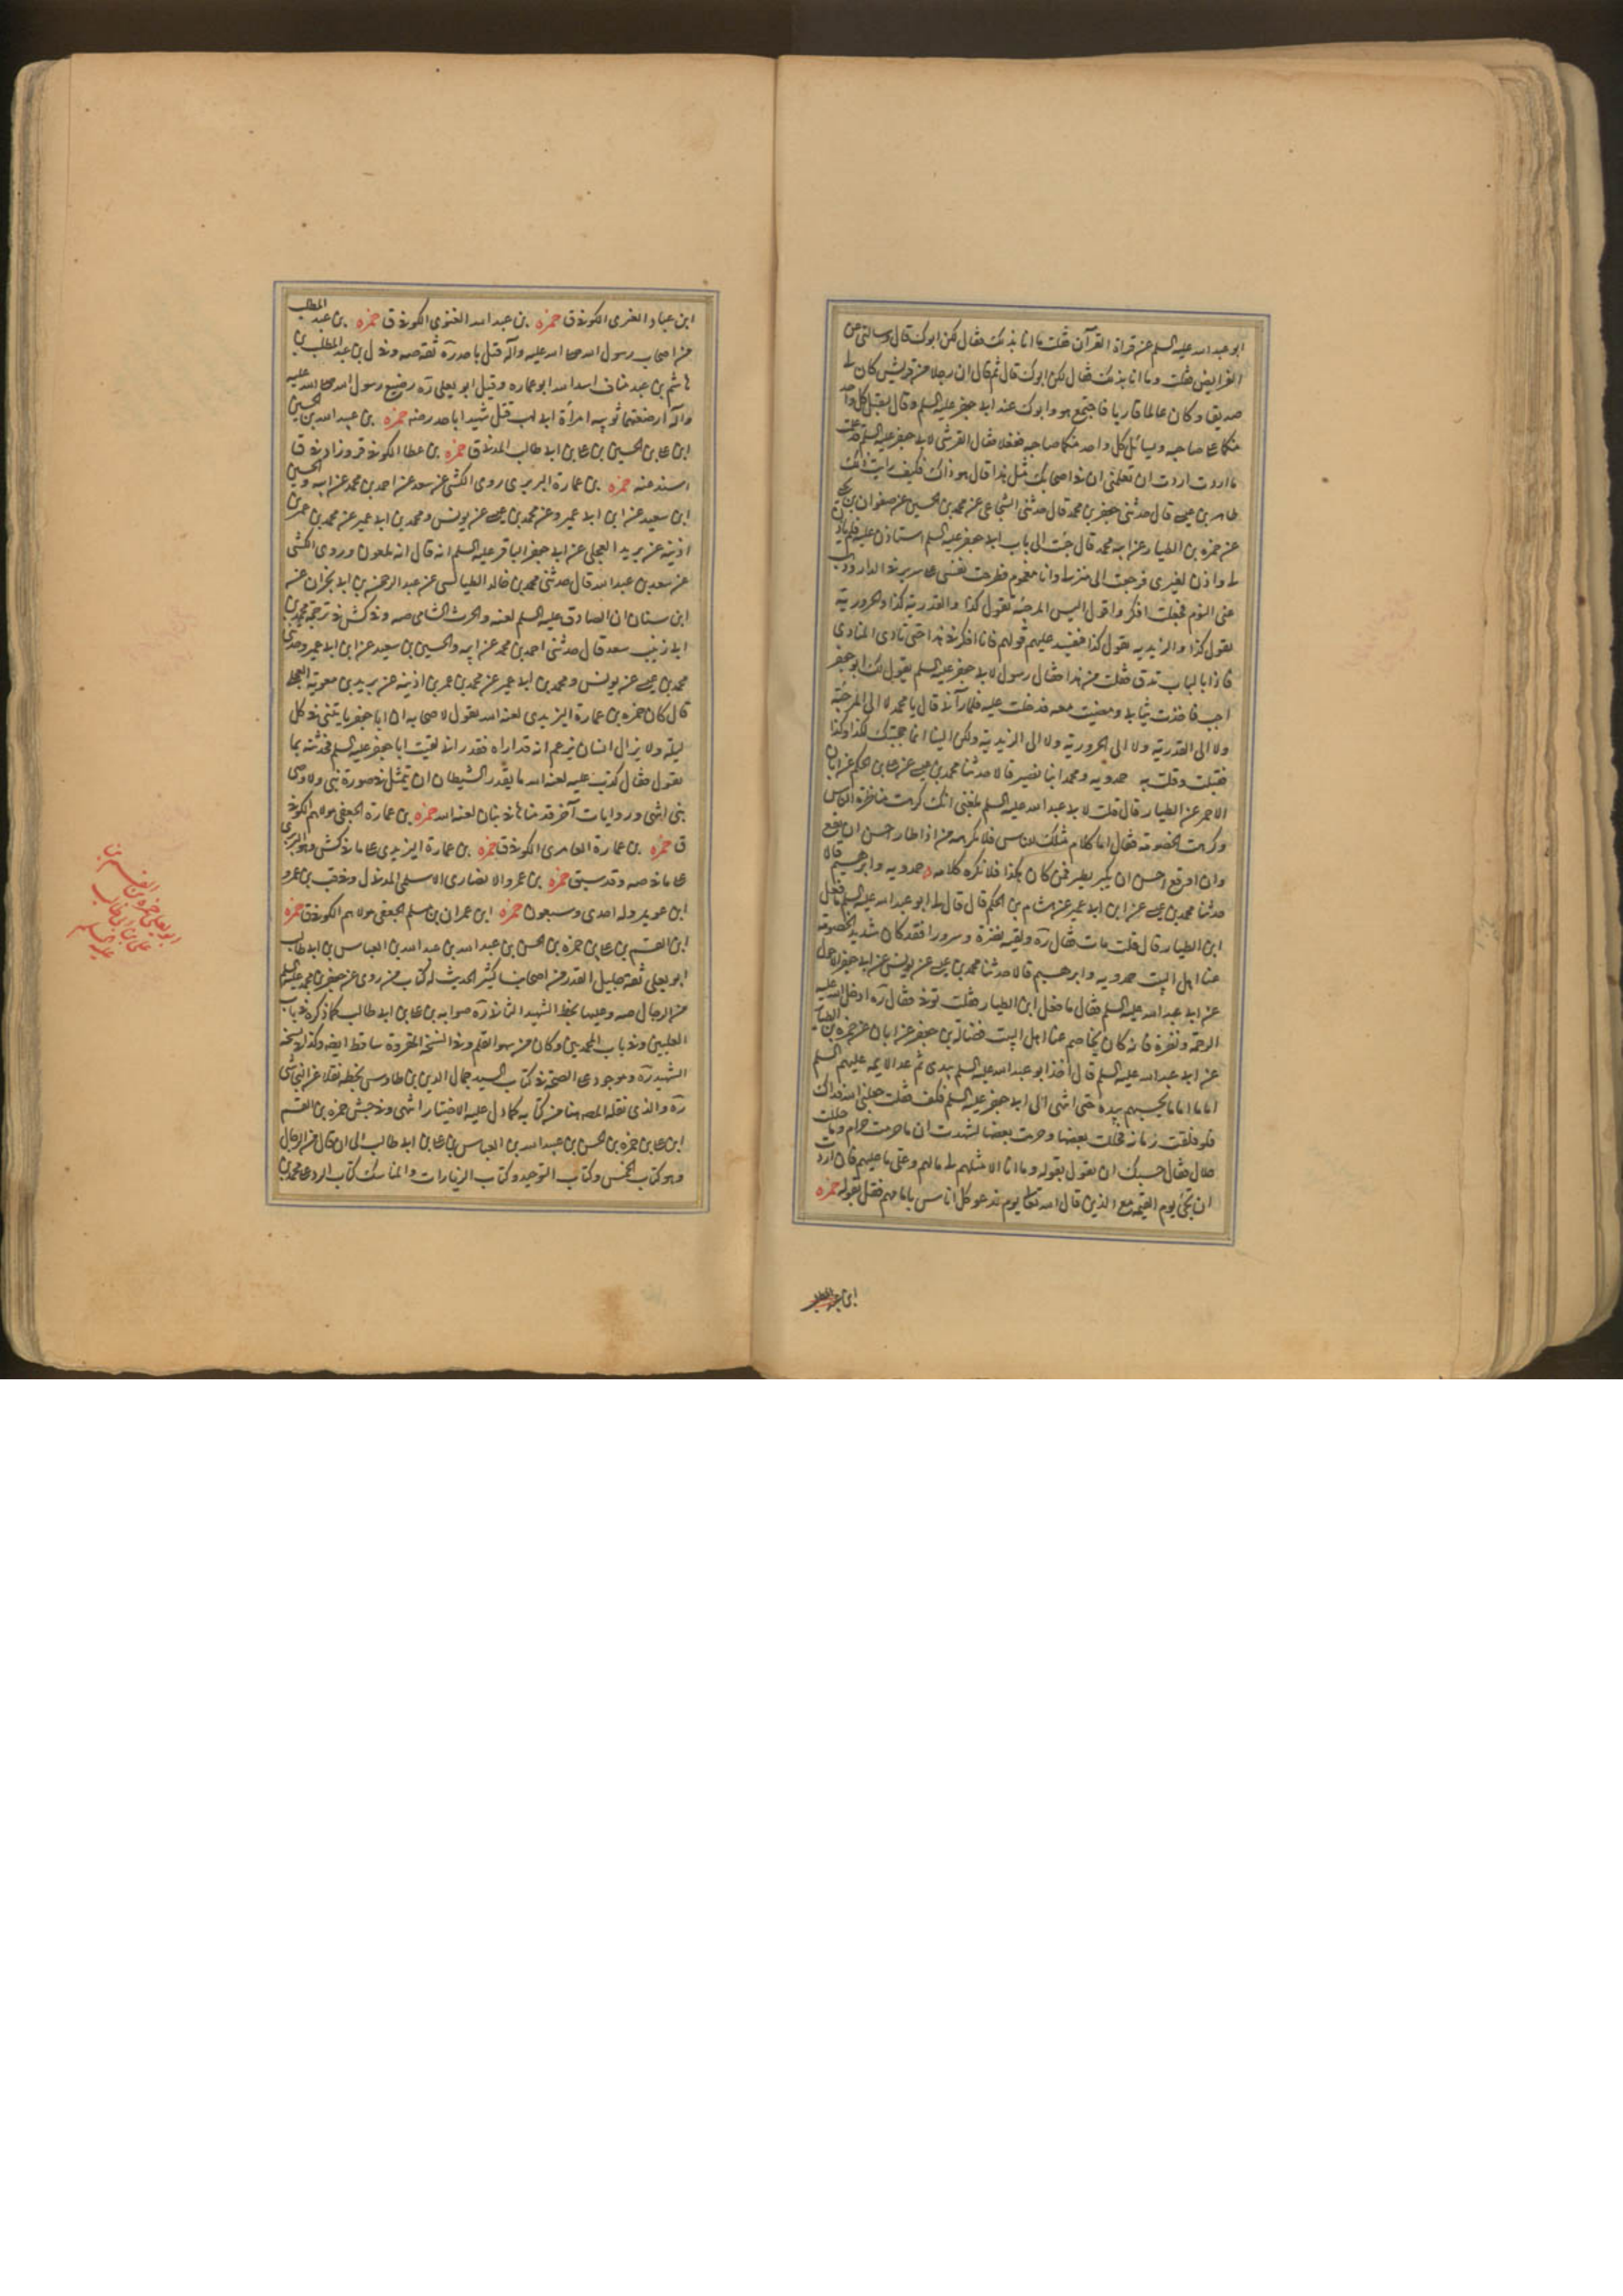 ابو عبد الله عليه السلم عن قراة القرآن فقلت ما انا بذلك فقال لكن ابوك قال وسالنى عن
الفرايض فقلت وما انا بذلك فقال لكن ابوك قال ثم قال ان رجلا من قريش كان لى
صديقا وكان عالما قاريا فاجتمع هو وابوك عند ابى جعفر عليه السلم وقال ليقبل كل واحد
منكما على صاحبه ويسائل كل واحد منكما صاحبه ففعلا فقال القرشى لابى جعفر عليه السلم قد علمت
ما اردت اردت ان تعلمنى ان فى اصحابك مثل هذا قال هو ذاك فكيف رايت ذلك
طاهر بن عيسى قال حدثنى جعفر بن محمد قال حدثنى الشجاعى عن محمد بن الحسين عن صفوان بن يحيى
عن حمزه بن الطيار عن ابيه محمد قال جئت الى باب ابى جعفر عليه السلم استاذن عليه فلم ياذن
لى واذن لغيرى فرجعت الى منزلى وانا مغموم فطرحت نفسى على سرير فى الدار وذهب
عنى النوم فجعلت افكر واقول اليس المرجئه تقول كذا والقدرية كذا والحرورية
تقول كذا والزيديه تقول كذا فنفسد عليهم قولهم فانا افكر فى هذا حتى نادى المنادى
فاذا بالباب تدق فقلت من هذا فقال رسول لابى جعفر عليه السلم يقول لك ابو جعفر
اجب فاخذت ثيابى ومضيت معه فدخلت عليه فلما رآنى قال يا محمد لا الى المرجئة
ولا الى القدرية ولا الى الحرورية ولا الى الزيدية ولكن الينا انما حجبتك لكذا وكذا
فقبلت وقلت به حمدويه ومحمد ابنا نصير قالا حدثنا محمد بن عيسى عن على بن الحكم عن ابان
الاحمر عن الطيار قال قلت لابى عبد الله عليه السلم بلغنى انك كرهت مناظرة الناس
وكرهت الخصومة فقال اما كلام مثلك للناس فلا نكرهه من اذا طار احسن ان يقع
وان وقع احسن ان يطير فمن كان هكذا فلا نكره كلامه حمدويه وابرهيم قالا
حدثنا محمد بن عيسى عن ابن ابى عمير عن هشام بن الحكم قال قال لى ابو عبد الله عليه السلم ما فعل
ابن الطيار قال قلت مات فقال ره ولقيه نضرة وسرورا فقد كان شديد الخصومة
عنا اهل البيت حمدويه وابرهيم قالا حدثنا محمد بن عيسى عن يونس عن ابى جعفر الاحول
عن ابى عبد الله عليه السلم فقال ما فعل ابن الطيار فقلت توفى فقال ره ادخل الله عليه
الرحمة ونضرة فانه كان يخاصم عنا اهل البيت فضالة بن جعفر عن ابان عن حمزه بن الطيار
عن ابى عبد الله عليه السلم قال اخذ ابو عبد الله عليه السلم بيدى ثم عد الايمه عليهم السلم
اماما اماما يحسبهم بيده حتى انتهى الى ابى جعفر عليه السلم فكف فقلت جعلنى الله فداك
فلو فلقت رمانه فحللت بعضها وحرمت بعضها لشهدت ان ما حرمت حرام وما حللت
حلال فقال حسبك ان تقول بقوله وما انا الا مثلهم لى ما لهم وعلى ما عليهم فان اردت
ان تجئ يوم القيمه مع الذين قال الله تعالى يوم ندعو كل اناس بامامهم فقل بقوله حمزه
ابن عباد العنزى الكوفى ق حمزه بن عبد الله الغنوى الكوفى ق حمزه بن عبد المطلب
من اصحاب رسول الله صلى الله عليه وآله قتل باحد ره ثقه صه وفى ل بن عبد المطلب بن
هاشم بن عبد مناف اسد الله ابو عماره وقيل ابو يعلى ره رضيع رسول الله صلى الله عليه
وآله ارضعتهما ثويبه امرأة ابى لهب قتل شهيدا باحد رضه حمزه بن عبيد الله بن الحسين
ابن على بن الحسين بن على بن ابى طالب المدنى ق حمزه بن عطا الكوفى ق وزاد فى ق
اسند عنه حمزه بن عمارة البربرى روى الكشى عن سعد عن احمد بن محمد عن ابيه والحسين
ابن سعيد عن ابن ابى عمير وعن محمد بن عيسى عن يونس ومحمد بن ابى عمير عن محمد بن عمر بن
اذينه عن بريد العجلى عن ابى جعفر الباقر عليه السلم انه قال انه ملعون وروى الكشى
عن سعد بن عبد الله قال حدثنى محمد بن خالد الطيالسى عن عبد الرحمن بن ابى نجران عن
ابن سنان ان الصادق عليه السلم لعنه والحرث الشامى صه وفى كش فى ترجمة محمد بن
ابى زينب سعد قال حدثنى احمد بن محمد عن ابيه والحسين بن سعيد عن ابن ابى عمير وحدثنى
محمد بن عيسى عن يونس ومحمد بن ابى عمير عن محمد بن عمر بن اذينه عن بريد بن معوية العجلى
قال كان حمزه بن عمارة اليزيدى لعنه الله يقول لاصحابه ان ابا جعفر ياتينى فى كل
ليله ولا يزال انسان يزعم انه قد اراه فقدر انى لقيت ابا جعفر عليه السلم فحدثته بما
يقول فقال كذب عليه لعنه الله ما يقدر الشيطان ان يتمثل فى صورة نبى ولا وصى
نبى انتهى وروايات آخر قدمناها فى بنان لعنه الله حمزه بن عمارة الجعفى مولاهم الكوفى
ق حمزه بن عمارة العامرى الكوفى ق حمزه بن عمارة اليزيدى على ما فى كش وهو البربرى
على ما فى صه وقد سبق حمزه بن عمرو الانصارى الاسلمى المدنى ل وفى قب بن عمرو
ابن عويمر وله احدى وسبعون حمزه ابن عمران بن مسلم الجعفى مولاهم الكوفى ق حمزه
ابن القسم بن على بن حمزه بن الحسن بن عبيد الله بن عبد الله بن العباس بن ابى طالب
ابو يعلى ثقة جليل القدر من اصحابنا كثير الحديث له كتاب من روى عن جعفر بن محمد عليه السلم
من الرجال صه وعليها بخط الشهيد الثانى ره صوابه بن على بن ابى طالب كما ذكره فى باب
العليين وفى باب المحمدين وكان من سهو القلم وفى النسخه المقروة ساقط ايضه وكذا فى نسخه
الشهيد ره وموجود على الصحه فى كتاب السيد جمال الدين بن طاوس بخطه نقلا عن النجاشى
ره والذى نقله المصه هنا من كتابه كما دل عليه الاختبار انتهى وفى جش حمزه بن القسم
ابن على بن حمزه بن الحسن بن عبيد الله بن العباس بن على بن ابى طالب الى ان قال من الرجال
وهو كتاب حسن وكتاب التوحيد وكتاب الزيارات والمناسك كتاب الرد على محمد بن